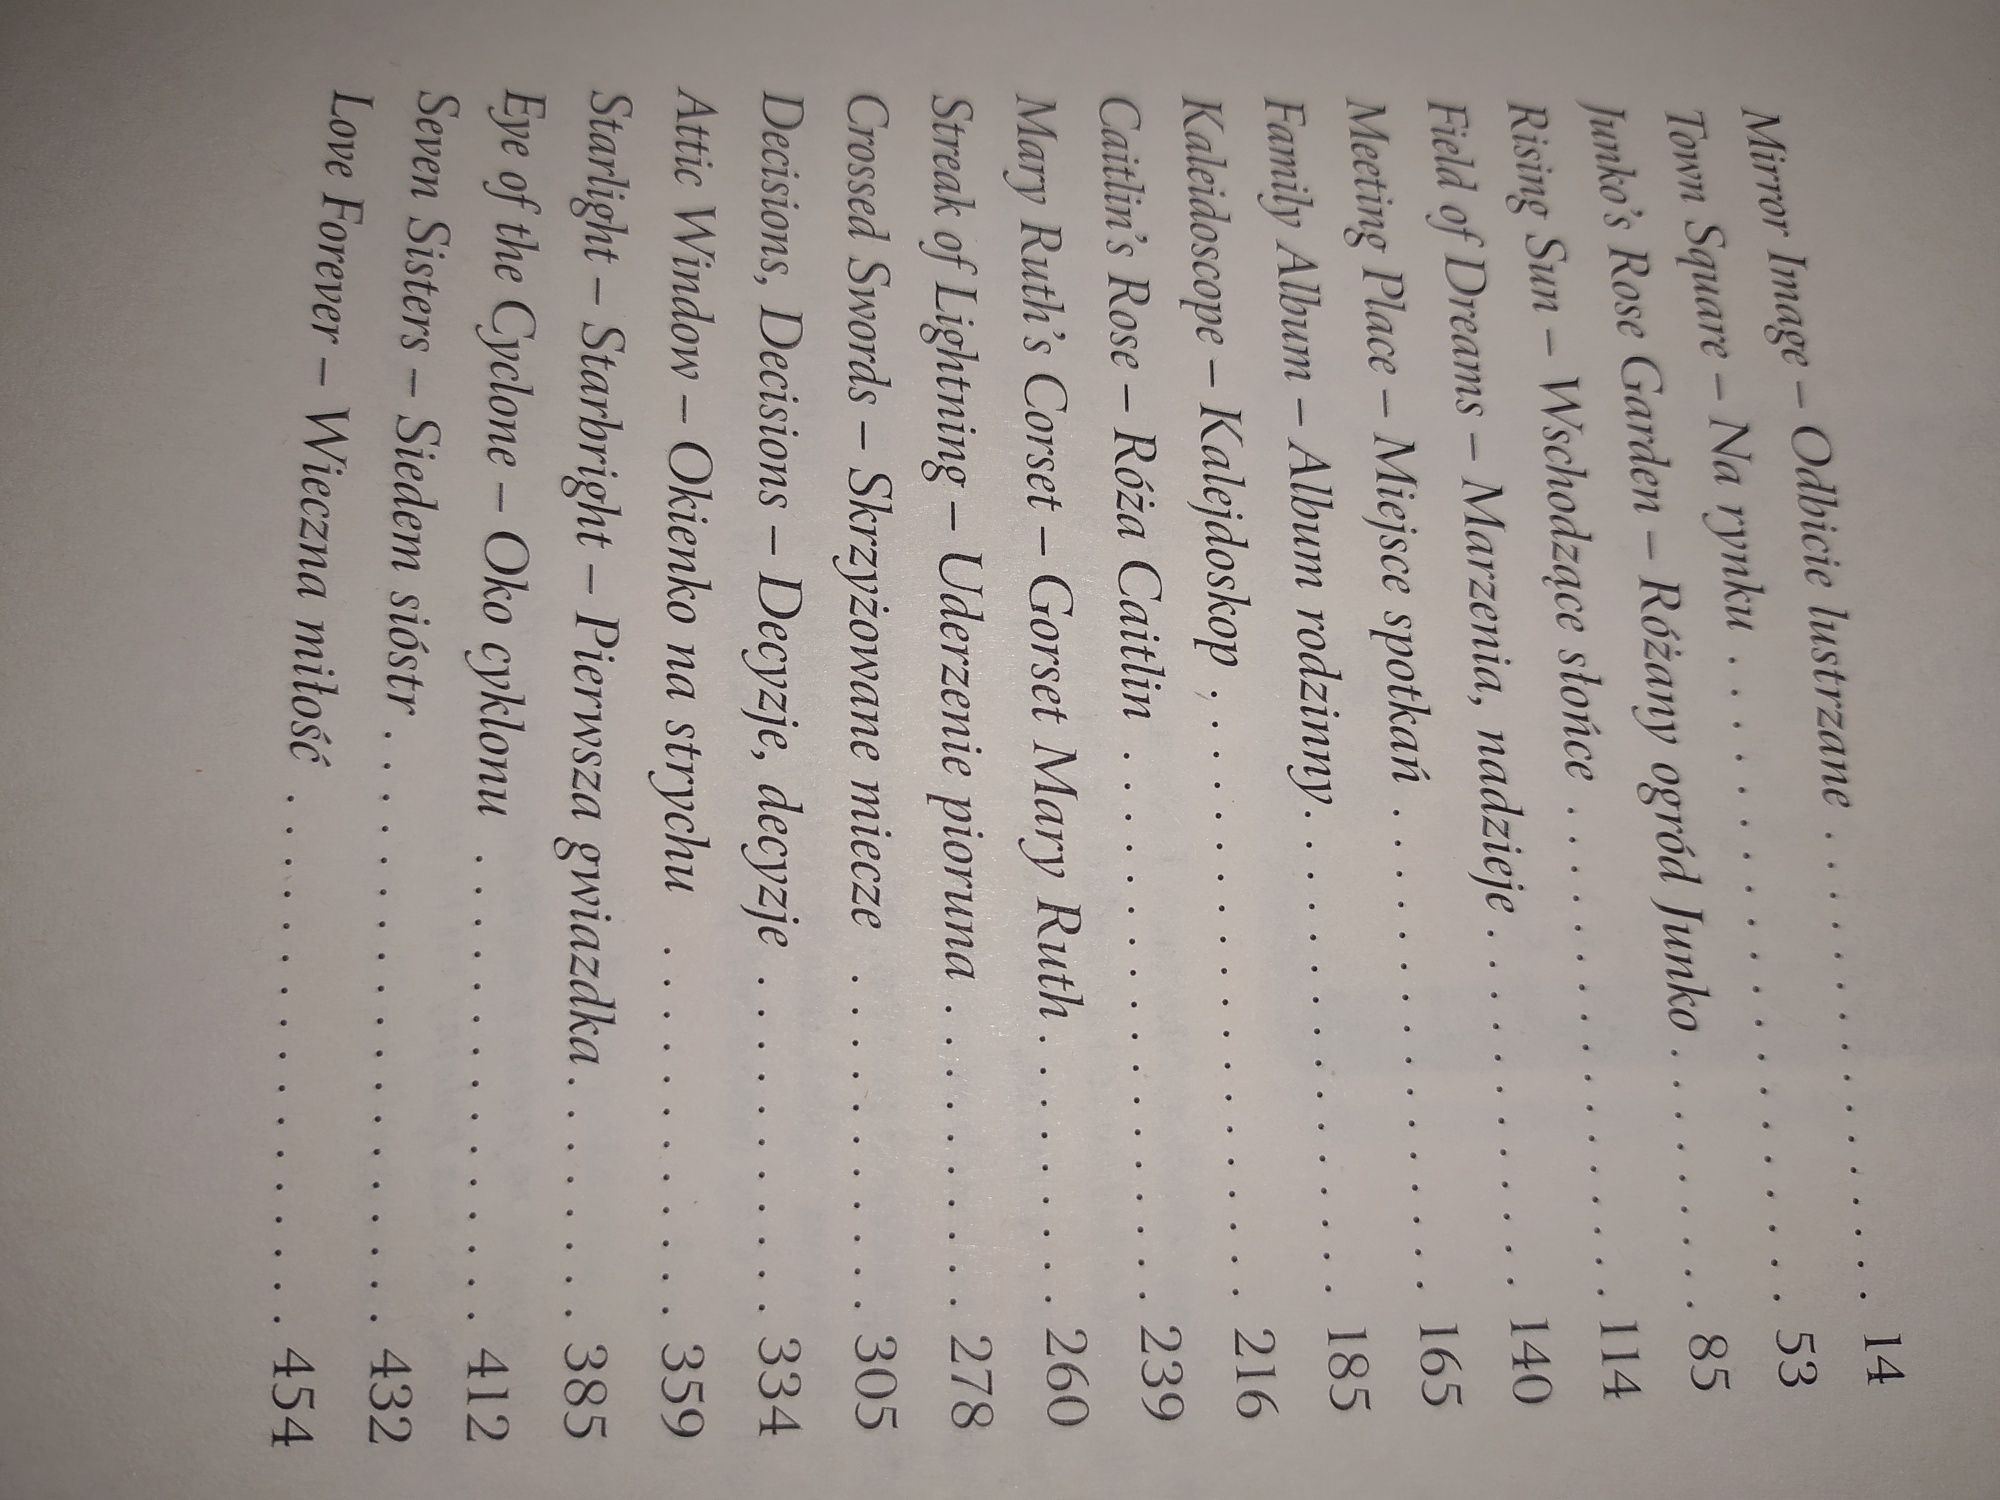 Mirror Image – Odbicie lustrzane . . . . . . . . . . . . . . . . 14
Town Square – Na rynku . . . . . . . . . . . . . . . . . . . . . 53
Junko's Rose Garden – Różany ogród Junko . . . . . . . . . 85
Rising Sun – Wschodzące słońce . . . . . . . . . . . . . . . . 114
Field of Dreams – Marzenia, nadzieje . . . . . . . . . . . . 140
Meeting Place – Miejsce spotkań . . . . . . . . . . . . . . . . 165
Family Album – Album rodzinny . . . . . . . . . . . . . . . . 185
Kaleidoscope – Kalejdoskop . . . . . . . . . . . . . . . . . . . . 216
Caitlin's Rose – Róża Caitlin . . . . . . . . . . . . . . . . . . 239
Mary Ruth's Corset – Gorset Mary Ruth . . . . . . . . . 260
Streak of Lightning – Uderzenie pioruna . . . . . . . . . . 278
Crossed Swords – Skrzyżowane miecze . . . . . . . . . . . 305
Decisions, Decisions – Decyzje, decyzje . . . . . . . . . . . 334
Attic Window – Okienko na strychu . . . . . . . . . . . . 359
Starlight – Starbright – Pierwsza gwiazdka . . . . . . . . 385
Eye of the Cyclone – Oko cyklonu . . . . . . . . . . . . . . . 412
Seven Sisters – Siedem sióstr . . . . . . . . . . . . . . . . . . . 432
Love Forever – Wieczna miłość . . . . . . . . . . . . . . . . . 454